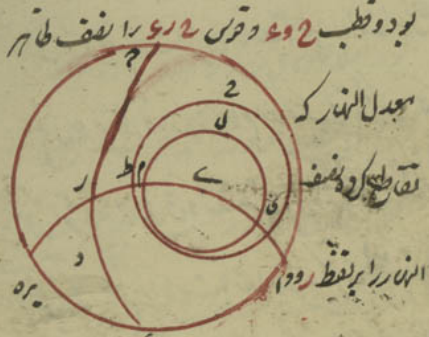 بود و قطب ح وع و قوس ح رع را نصف ظاهر
معدل النهار که
تقاطع کرده نصف
النهار را بر نقطه ر و دو
ح
ح
ل
ط
م
ر
ى
ق
د
يره